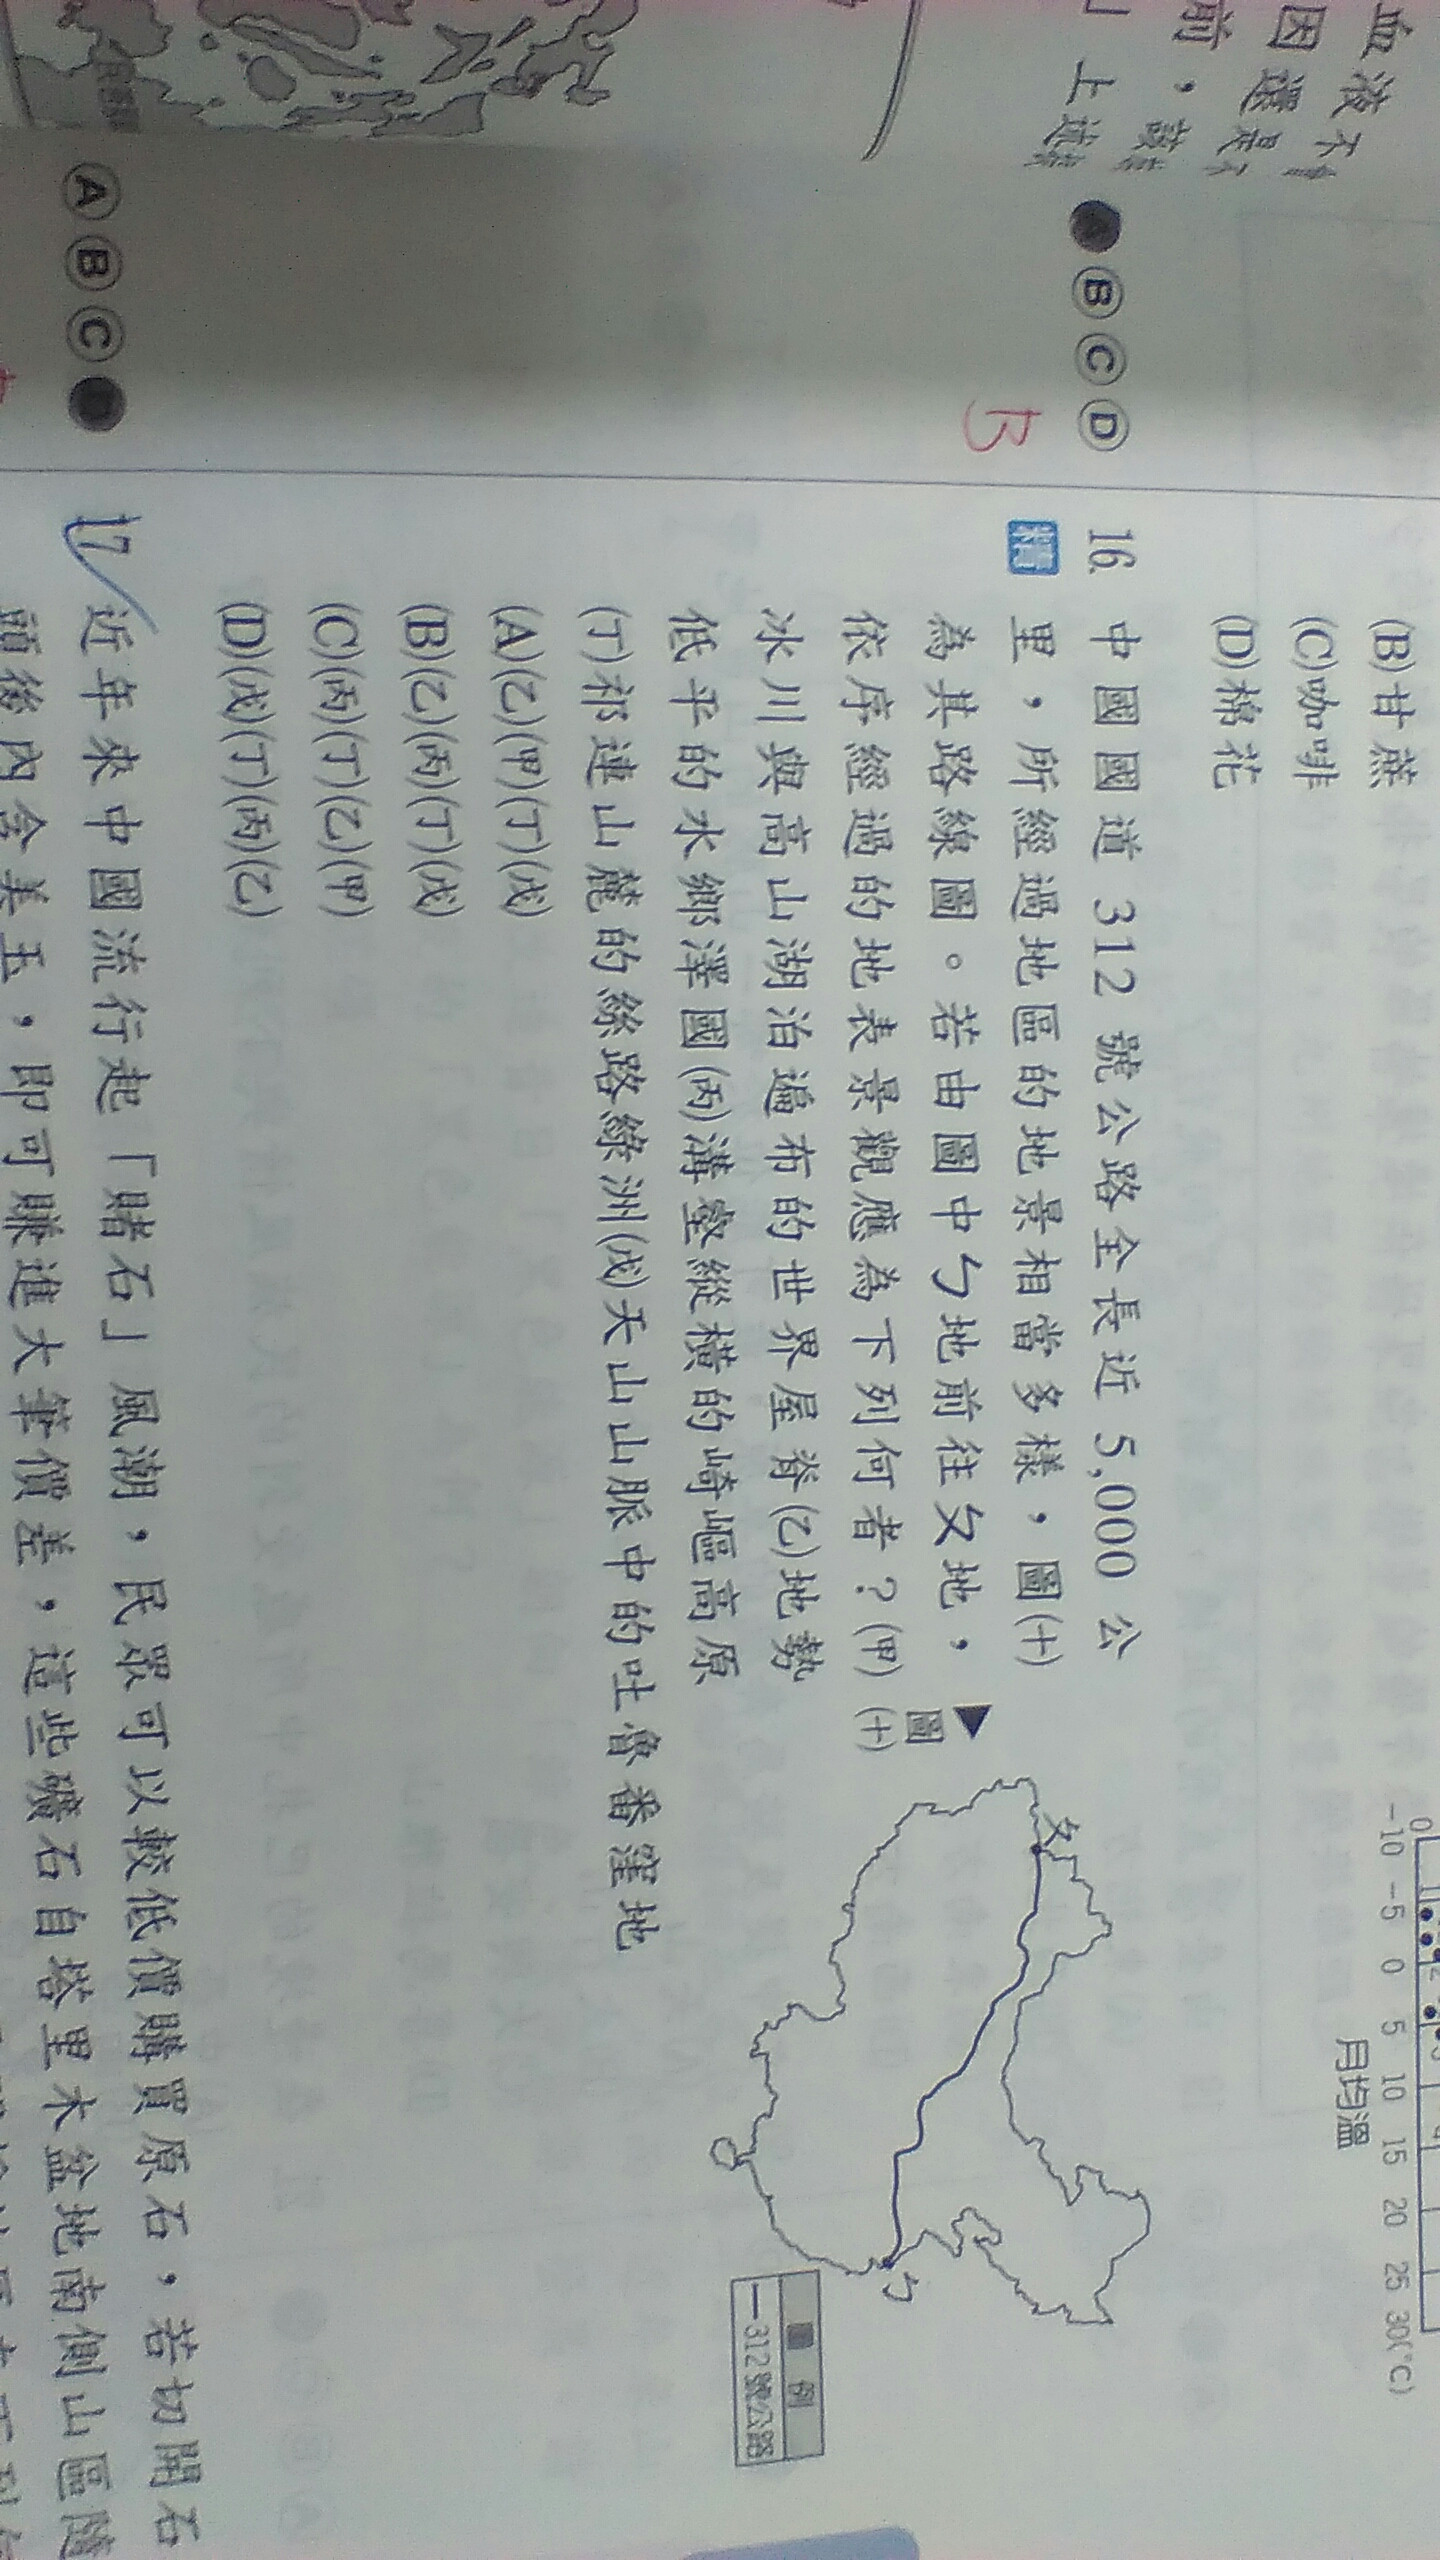 血液不會
因還是不
前，該
」上述
Ⓑ Ⓒ Ⓓ
B
Ⓐ Ⓑ Ⓒ
(B)甘蔗
(C)咖啡
(D)棉花
0
-10 -5 0 5 10 15 20 25 30(℃)
月均溫
16. 中國國道 312 號公路全長近 5,000 公
精 里，所經過地區的地景相當多樣，圖(十)
為其路線圖。若由圖中ㄅ地前往ㄆ地，
依序經過的地表景觀應為下列何者？(甲)
冰川與高山湖泊遍布的世界屋脊(乙)地勢
低平的水鄉澤國(丙)溝壑縱橫的崎嶇高原
(丁)祁連山麓的絲路綠洲(戊)天山山脈中的吐魯番窪地
(A)(乙)(甲)(丁)(戊)
(B)(乙)(丙)(丁)(戊)
(C)(丙)(丁)(乙)(甲)
(D)(戊)(丁)(丙)(乙)
▲圖(十)
ㄆ
ㄅ
圖例
—312號公路
17. 近年來中國流行起「賭石」風潮，民眾可以較低價購買原石，若切開石
頭後內含美玉，即可賺進大筆價差，這些礦石自塔里木盆地南側山區隨